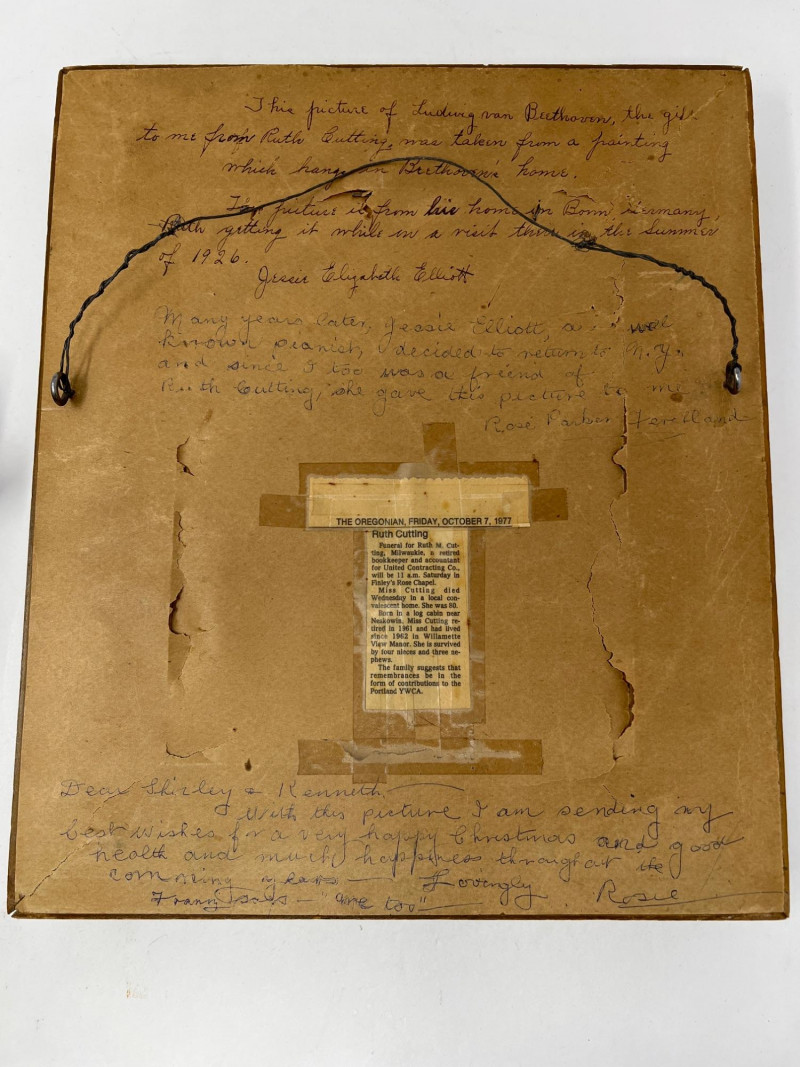 This picture of Ludwig van Beethoven, the gif
to me from Ruth Cutting, was taken from a painting
which hangs in Beethoven's home.
The picture is from his home in Bonn, Germany,
Ruth getting it while on a visit there in the Summer
of 1926.
Jessie Elizabeth Elliott
Many years later, Jessie Elliott, a well
known pianist, decided to return to N.Y.
and since I too was a friend of
Ruth Cutting, she gave this picture to me
Rose Parker
THE OREGONIAN, FRIDAY, OCTOBER 7, 1977
Ruth Cutting
Funeral for Ruth M. Cut-
ting, Milwaukie, a retired
bookkeeper and accountant
for United Contracting Co.,
will be 11 a.m. Saturday in
Finley's Rose Chapel.
Miss Cutting died
Wednesday in a local con-
valescent home. She was 80.
Born in a log cabin near
Neskowin, Miss Cutting re-
tired in 1961 and had lived
since 1962 in Willamette
View Manor. She is survived
by four nieces and three ne-
phews.
The family suggests that
remembrances be in the
form of contributions to the
Portland YWCA.
Dear Shirley & Kenneth-
With this picture I am sending my
best wishes for a very happy Christmas and good
health and much happiness throughout the
comming years — Lovingly
Franz says - "me too" Rosie